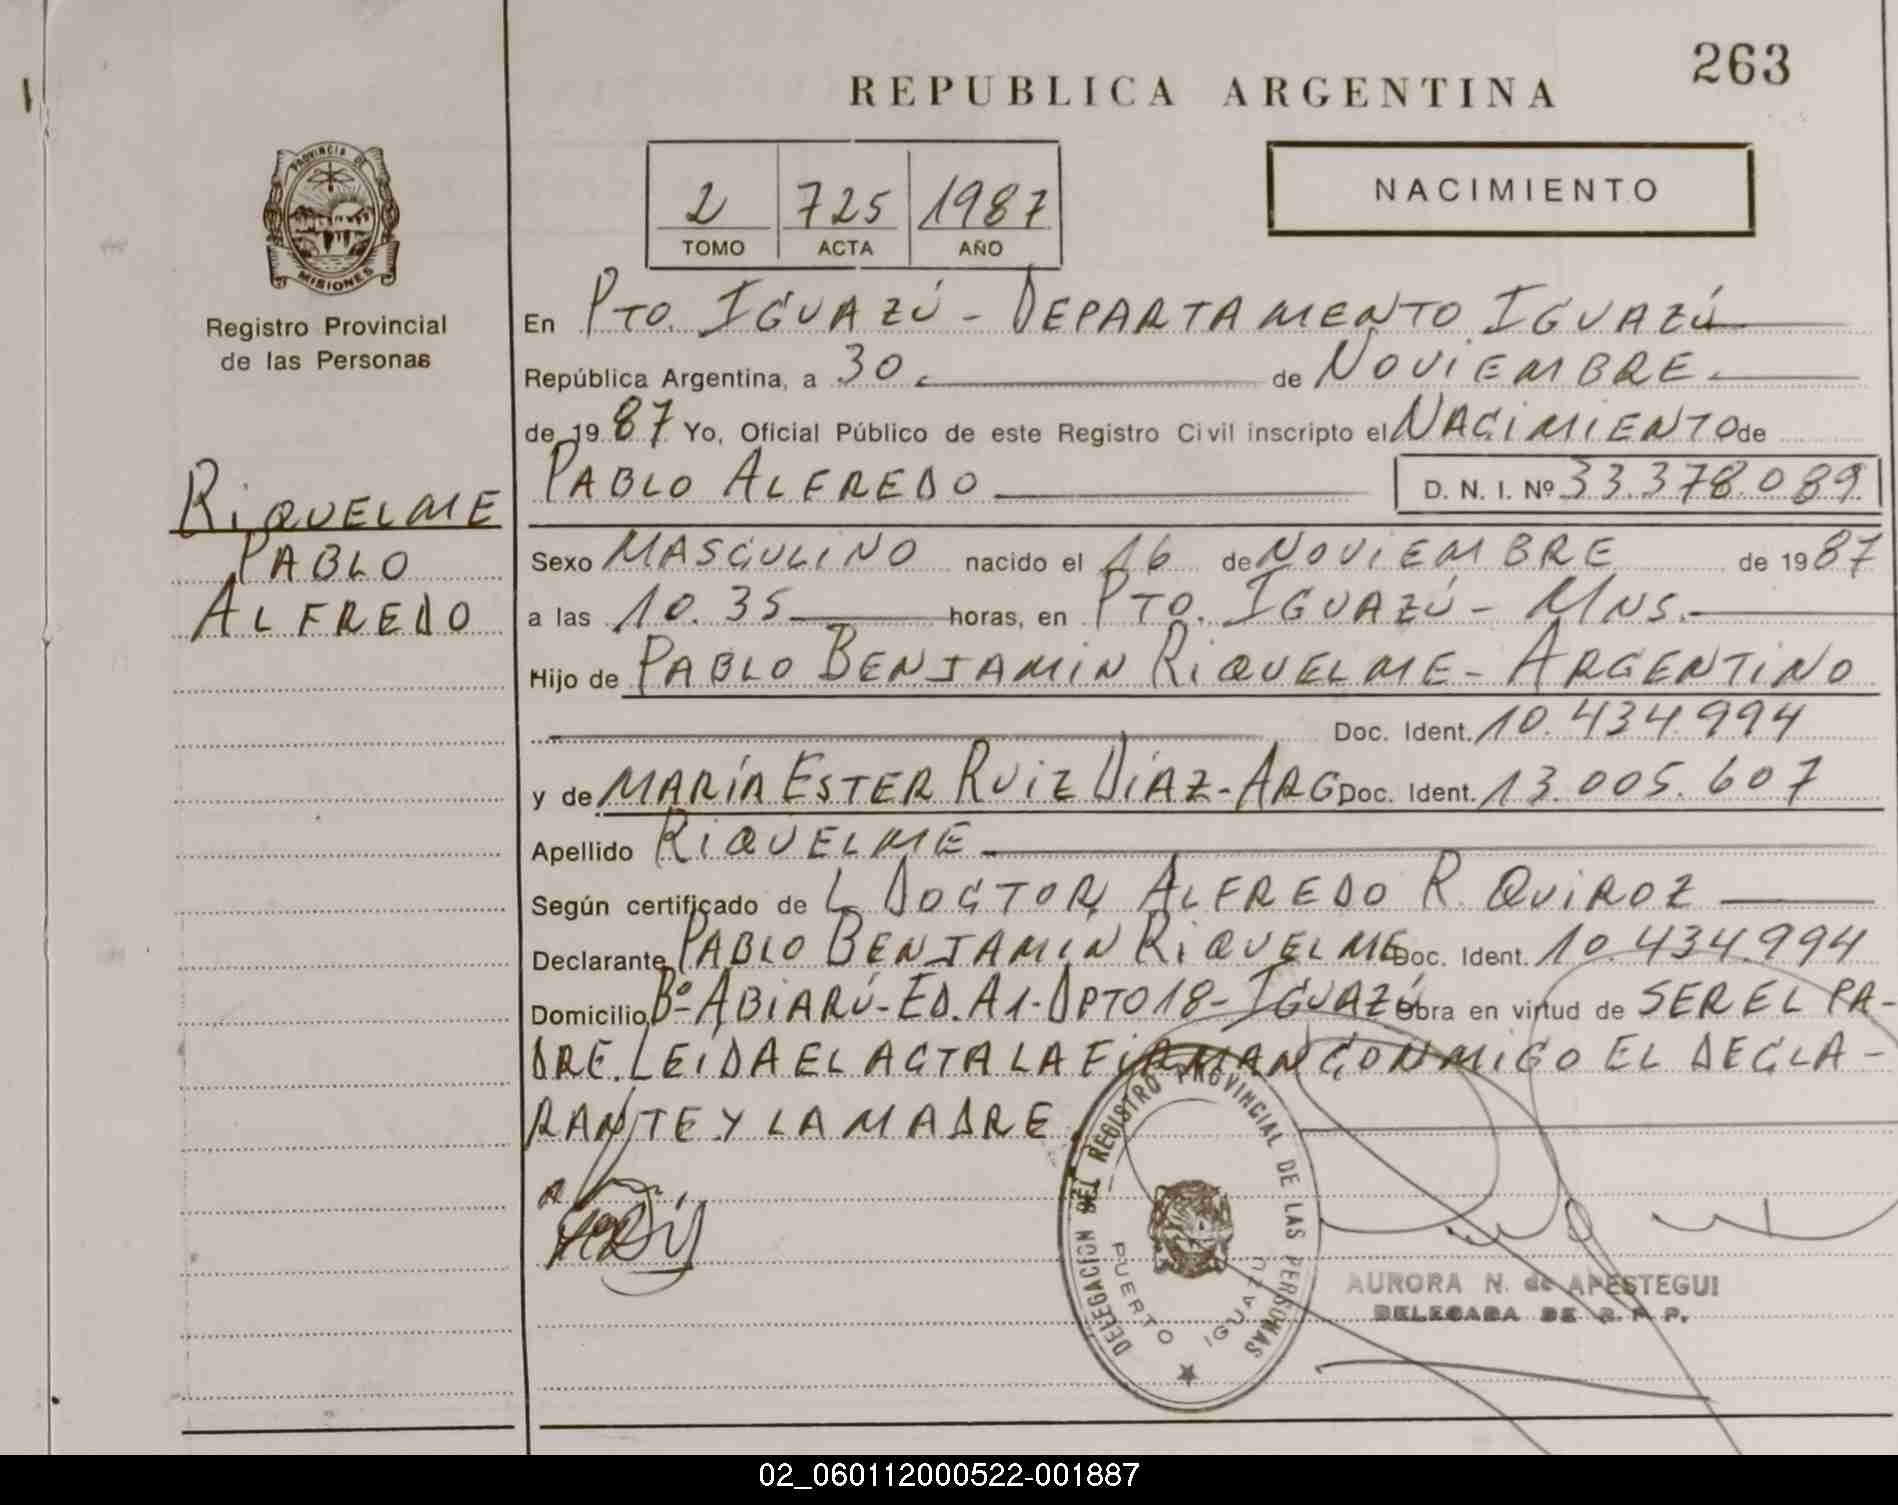 263
REPUBLICA ARGENTINA
PROVINCIA DE
MISIONES
Registro Provincial
de las Personas
2 725 1987
TOMO ACTA AÑO
NACIMIENTO
RIQUELME
PABLO
ALFREDO
En PTO. IGUAZÚ - DEPARTAMENTO IGUAZÚ
República Argentina, a 30 de NOVIEMBRE
de 1987 Yo, Oficial Público de este Registro Civil inscripto el NACIMIENTO de
PABLO ALFREDO D. N. I. Nº 33.378.089
Sexo MASCULINO nacido el 16 de NOVIEMBRE de 1987
a las 10.35 horas, en PTO. IGUAZÚ - MNS.
Hijo de PABLO BENJAMIN RIQUELME - ARGENTINO
Doc. Ident. 10.434.994
y de MARÍA ESTER RUIZ DÍAZ - ARG Doc. Ident. 13.005.607
Apellido RIQUELME
Según certificado de L DOCTOR ALFREDO R. QUIROZ
Declarante PABLO BENJAMÍN RIQUELME Doc. Ident. 10.434.994
Domicilio Bº ABIARÚ - ED. A1 - DPTO 18 - IGUAZÚ Obra en virtud de SER EL PA-
DRE. LEIDA EL ACTA LA FIRMAN CONMIGO EL DECLA-
RANTE Y LA MADRE
DELEGACION DEL REGISTRO PROVINCIAL DE LAS PERSONAS
PUERTO IGUAZU
AURORA N. de APESTEGUI
DELEGADA DE R.P.P.
02_060112000522-001887